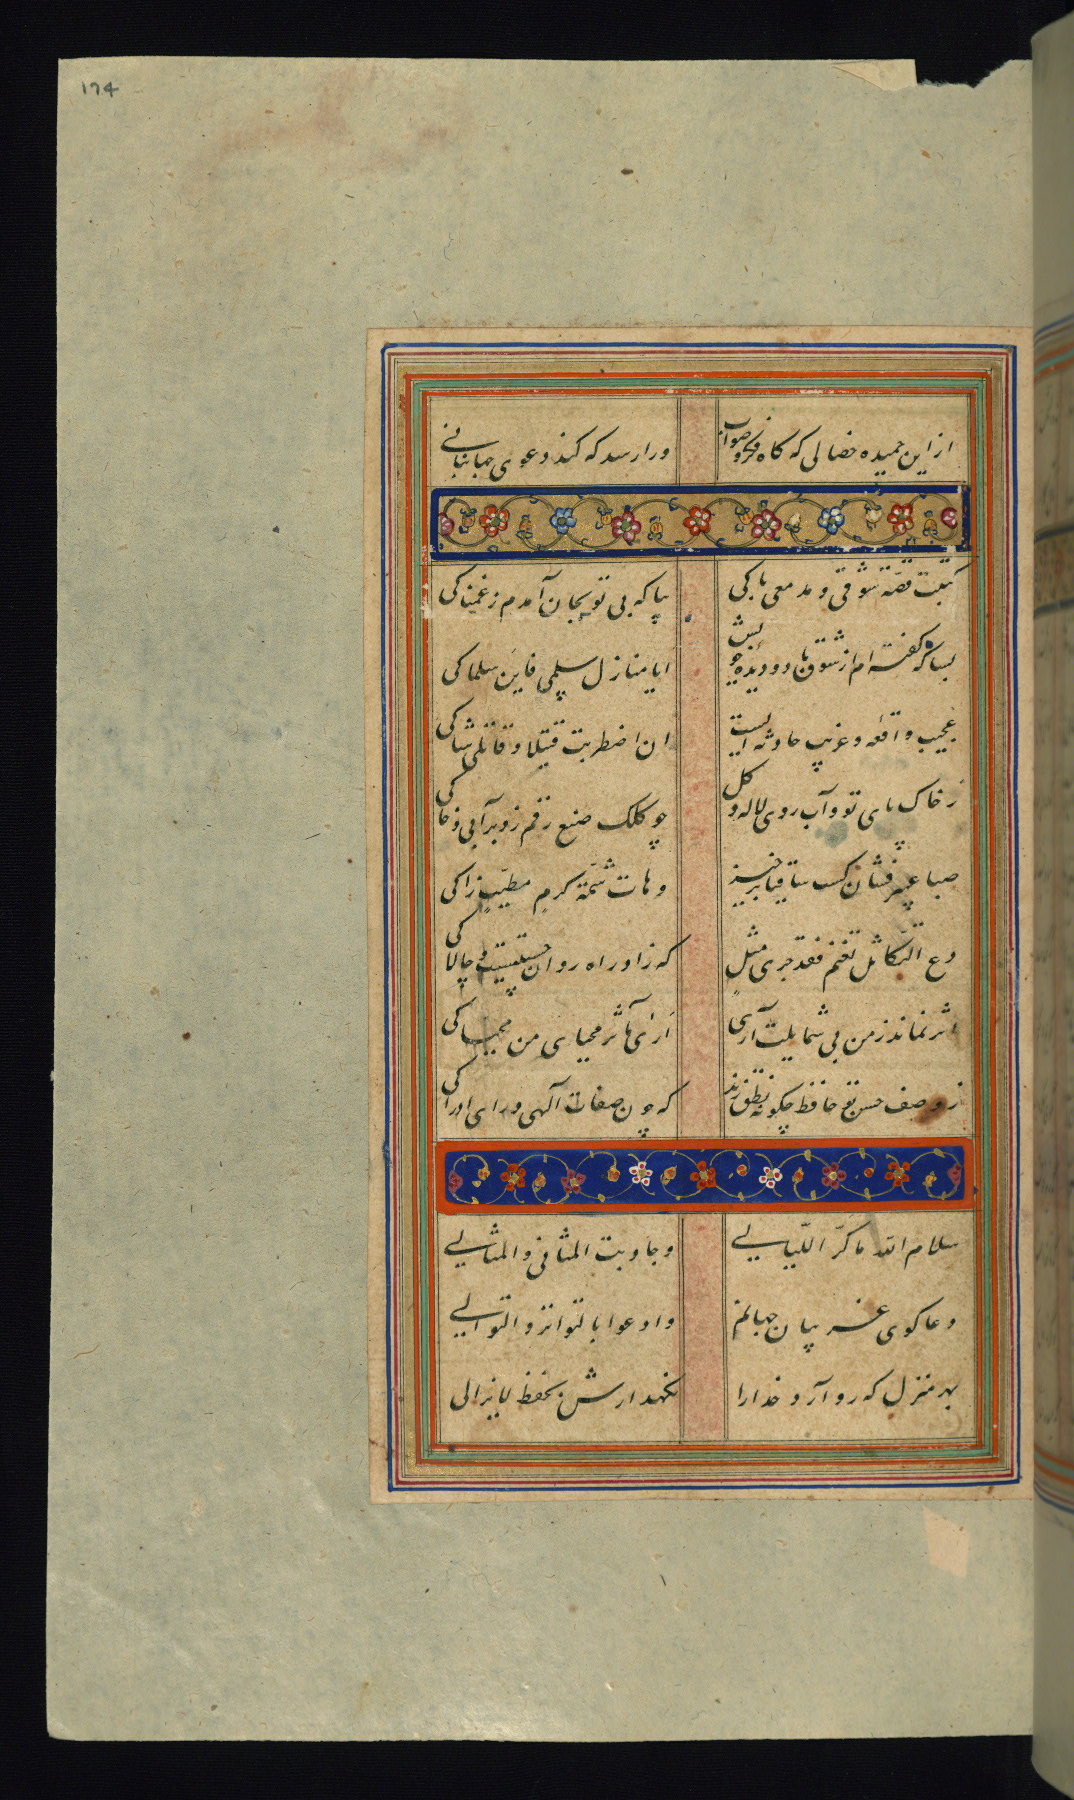 ۱۷۴
ازاین حمیده خصالی که گاه فکر و صواب ورا رسد که کند دعوی جهانبانی
کتبت قصّة شوقی و مدمعی باکی بیا که بی تو بجان آمدم ز غمناکی
بسا که گفته‌ام از شوق با دو دیده خویش ایا منازل سلمی فاین سلماکی
عجیب واقعه و غریب حادثه ایست ان اضطربت قتیلا و قاتلی شاکی
ز خاک پای تو و آب روی لاله و گل چو کلک صنع رقم زد بر آبی و خاکی
صبا عبیر فشان کست ساقیا برخیز و هات شمّة کرم مطیّب زاکی
دع التکاسل تغنم فقد جری مثل که زاد راه روان چستیست و چالاکی
اثر نماند ز من بی شمایلت آری اری مآثر محیای من محیاکی
ز وصف حسن تو حافظ چگونه نطق زند که چون صفات الهی ورای ادراکی
سلام الله ما کرّ اللّیالی و جاوبت المثانی و المثالی
دعا گوی غریبان جهانم و ادعوا بالتواتر و التوالی
بهر منزل که رو آرد خدا را نگهدارش بحفظ لایزالی